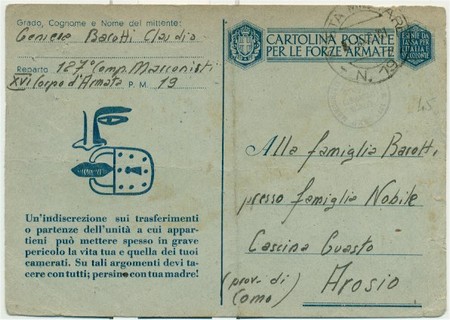 Grado, Cognome e Nome del mittente:
Geniere Barotti Claudio
Reparto 187° Comp. Marconisti
XVI Corpo d'Armata P. M. 19
Un'indiscrezione sui trasferimenti
o partenze dell'unità a cui appar-
tieni può mettere spesso in grave
pericolo la vita tua e quella dei tuoi
camerati. Su tali argomenti devi ta-
cere con tutti; persino con tua madre!
CARTOLINA POSTALE
PER LE FORZE ARMATE
N. 19
Alla famiglia Barotti
presso famiglia Nobile
Cascina Guasto
(prov. di Como) Arosio